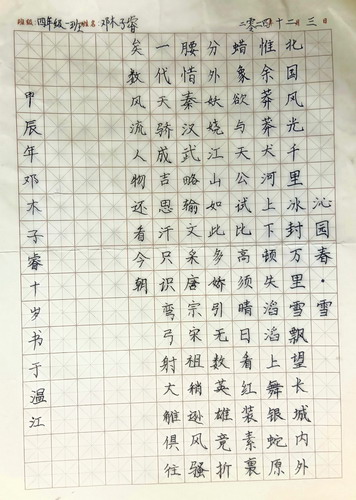 班级 四年级一班 姓名 邓木子睿 二零二四 十二月 三 日
沁园春·雪
北国风光千里冰封万里雪飘望长城内外
惟余莽莽大河上下顿失滔滔上舞银蛇原
蜡象欲与天公试比高须晴日看红装素裹
分外妖娆江山如此多娇引无数英雄竞折
腰惜秦汉武略输文采唐宗宋祖稍逊风骚
一代天骄成吉思汗只识弯弓射大雕俱往
矣数风流人物还看今朝
甲辰年邓木子睿十岁书于温江